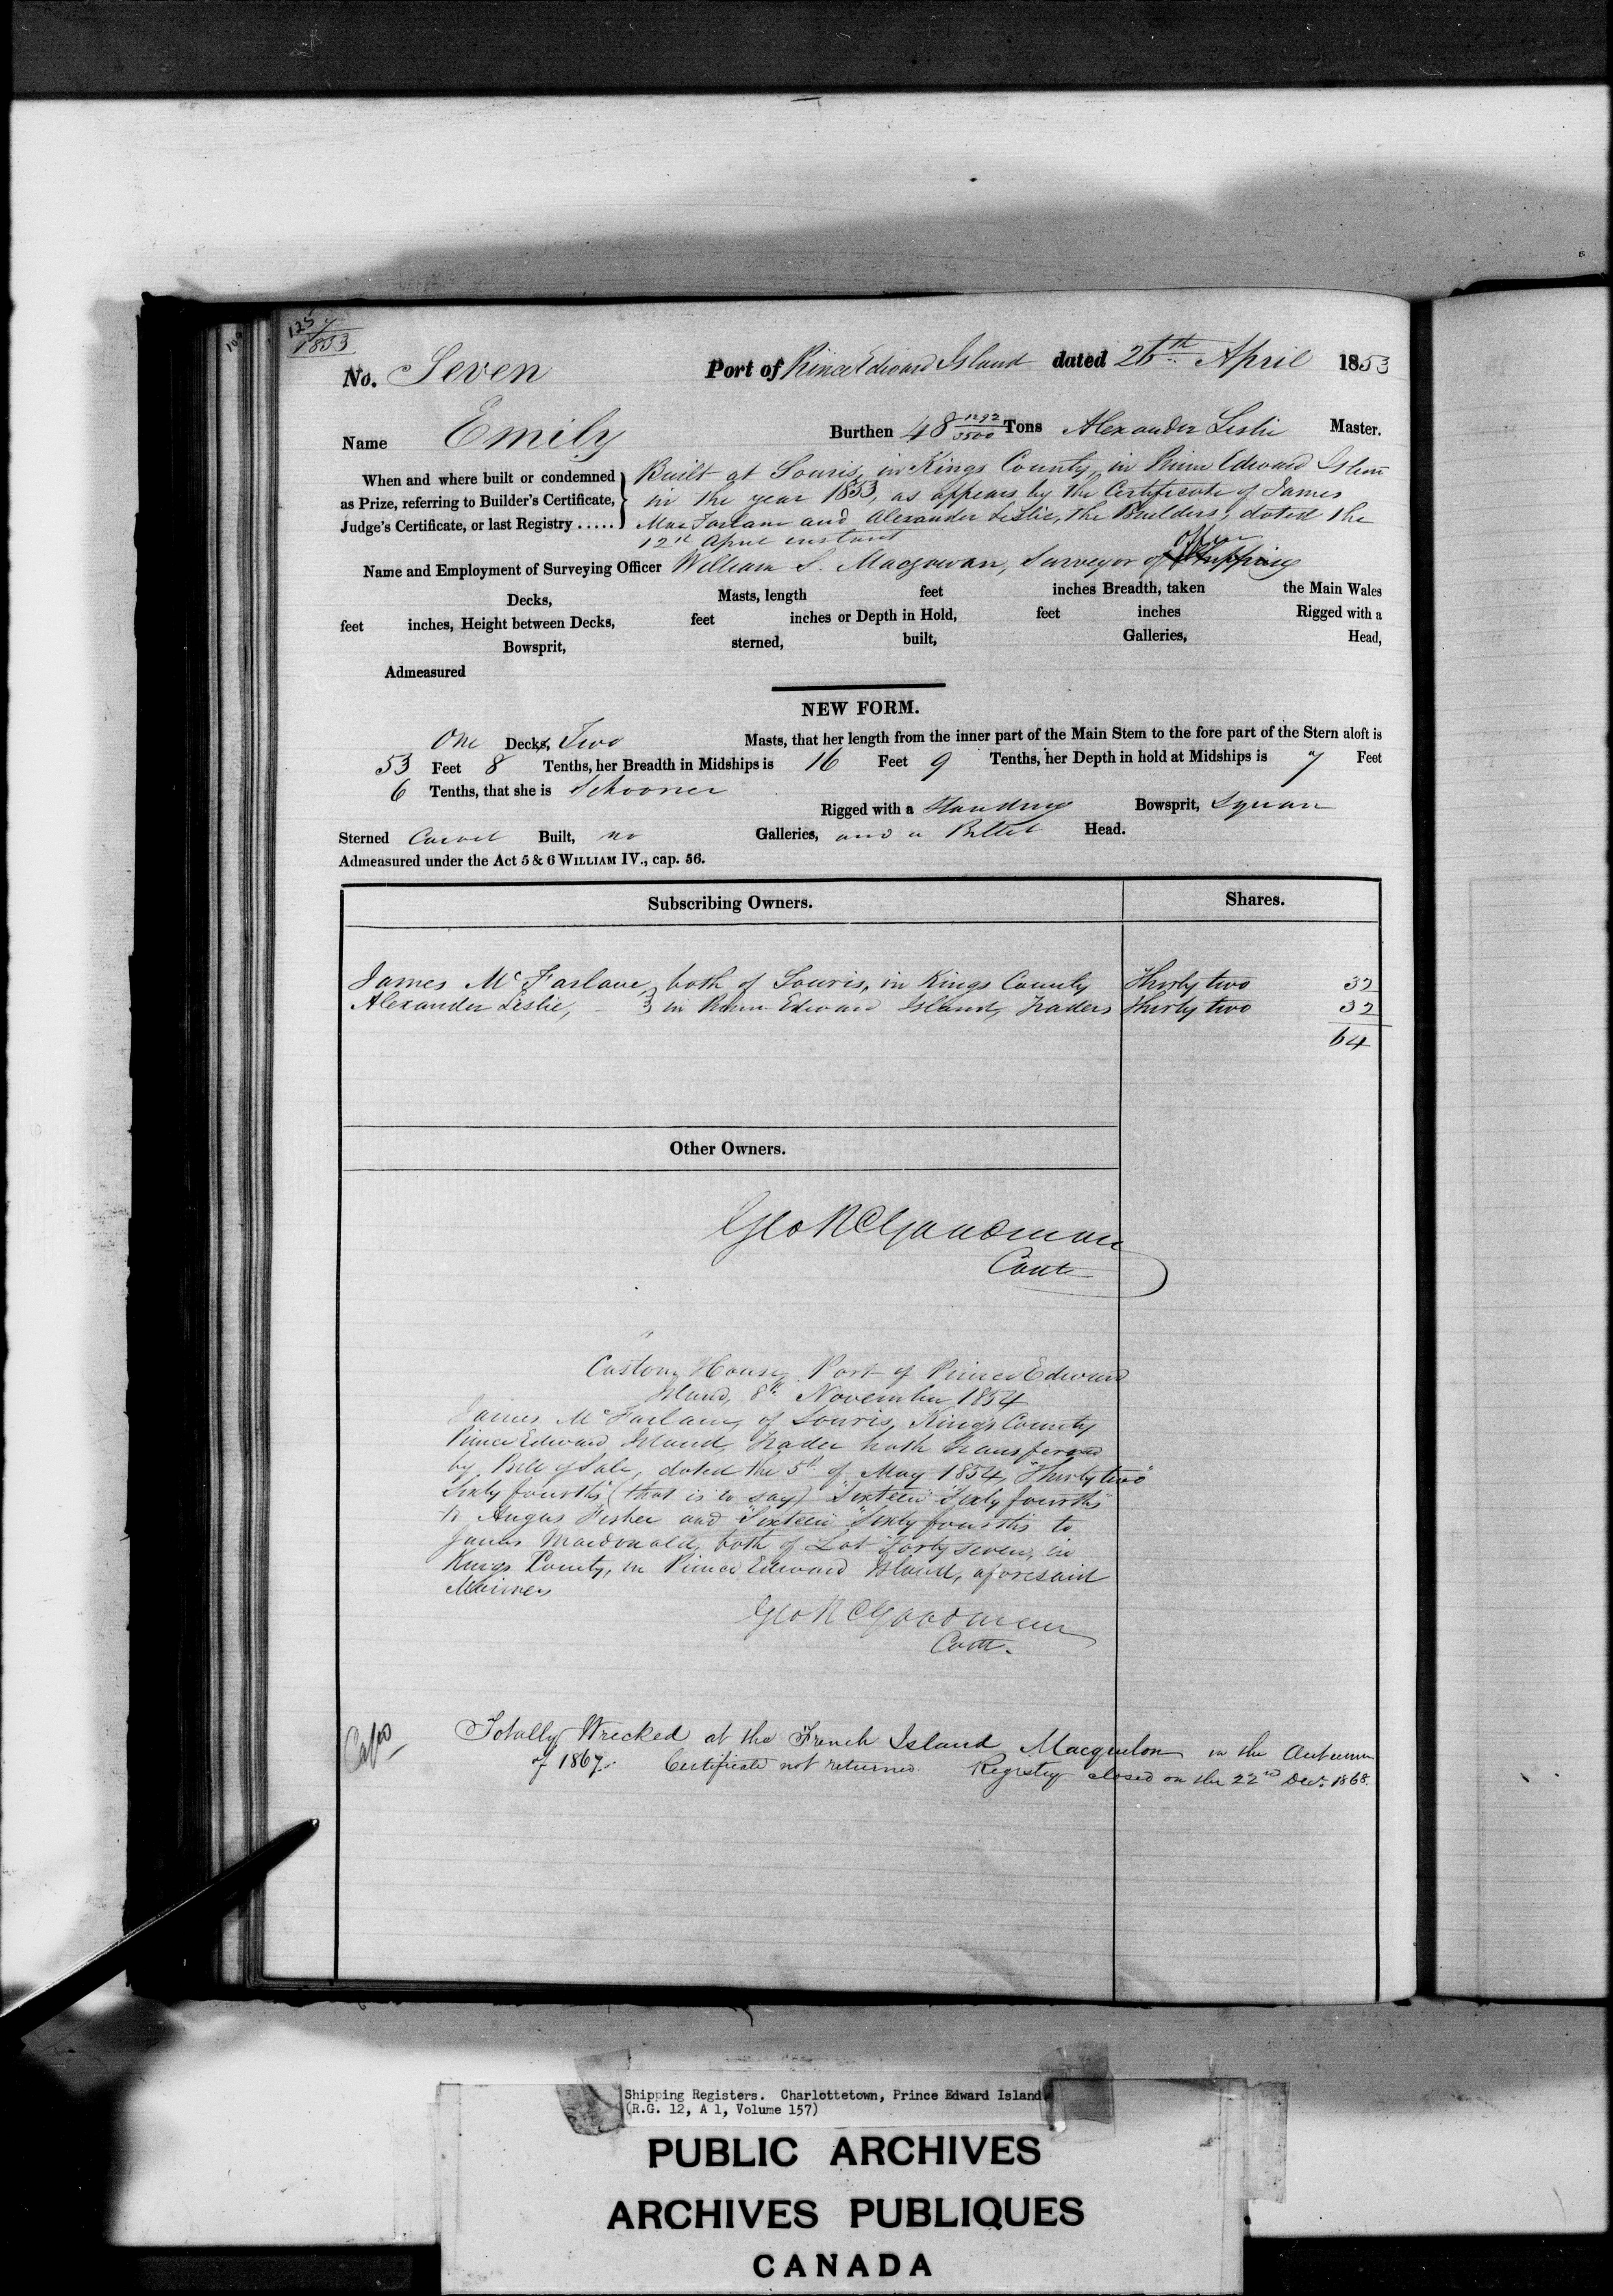 125 7
1853
No. Seven Port of Prince Edward Island dated 26th April 1853
Name Emily Burthen 48 1292/3500 Tons Alexander Leslie Master.
When and where built or condemned Built at Souris, in Kings County, in Prince Edward Island
as Prize, referring to Builder's Certificate, in the year 1853, as appears by the Certificate of James
Judge's Certificate, or last Registry ..... MacFarlane and Alexander Leslie, the Builders, dated the
12th April instant
Name and Employment of Surveying Officer William S. Macgowan, Surveyor of Shipping
Decks, Masts, length feet inches Breadth, taken the Main Wales
feet inches, Height between Decks, feet inches or Depth in Hold, feet inches Rigged with a
Bowsprit, sterned, built, Galleries, Head,
Admeasured
NEW FORM.
One Decks, Two Masts, that her length from the inner part of the Main Stem to the fore part of the Stern aloft is
53 Feet 8 Tenths, her Breadth in Midships is 16 Feet 9 Tenths, her Depth in hold at Midships is 7 Feet
6 Tenths, that she is Schooner
Rigged with a Standing Bowsprit, Square
Sterned Carvel Built, no Galleries, and a Billet Head.
Admeasured under the Act 5 & 6 WILLIAM IV., cap. 56.
Subscribing Owners. Shares.
James McFarlane, both of Souris, in Kings County Thirty two 32
Alexander Leslie, in Prince Edward Island, Traders Thirty two 32
64
Other Owners.
Geo R C Goodman
Cont
Custom House, Port of Prince Edward
Island, 8th November 1854
James McFarlane, of Souris, Kings County
Prince Edward Island, Trader hath transferred
by Bill of Sale, dated the 5th of May 1854, "Thirty two"
Sixty fourths (that is to say) "Sixteen" Sixty fourths
to Angus Fisher and "Sixteen" Sixty fourths to
James Macdonald, both of Lot Forty seven, in
Kings County, in Prince Edward Island, aforesaid
Mariners
Geo R C Goodman
Cont.
Totally Wrecked at the French Island Macquelon in the Autumn
of 1867. Certificate not returned. Registry closed on the 22nd Decr. 1868.
Shipping Registers. Charlottetown, Prince Edward Island
(R.G. 12, A 1, Volume 157)
PUBLIC ARCHIVES
ARCHIVES PUBLIQUES
CANADA